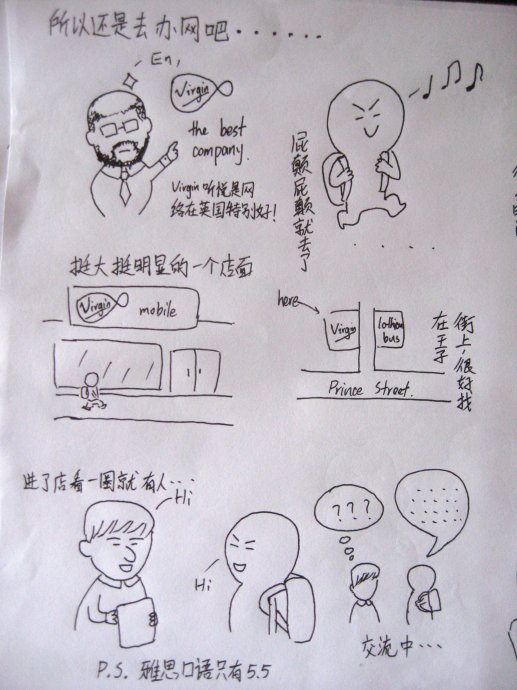 所以还是去办网吧······
En,
Virgin
the best
company.
Virgin听说是网
络在英国特别好!
屁颠屁颠就去了
·····
挺大挺明显的一个店面
Virgin
mobile
here
Virgin
lothian
bus
Prince Street.
在王子
街上,很好找
进了店看一圈就有人···
Hi
Hi
???
交流中···
P.S. 雅思口语只有5.5